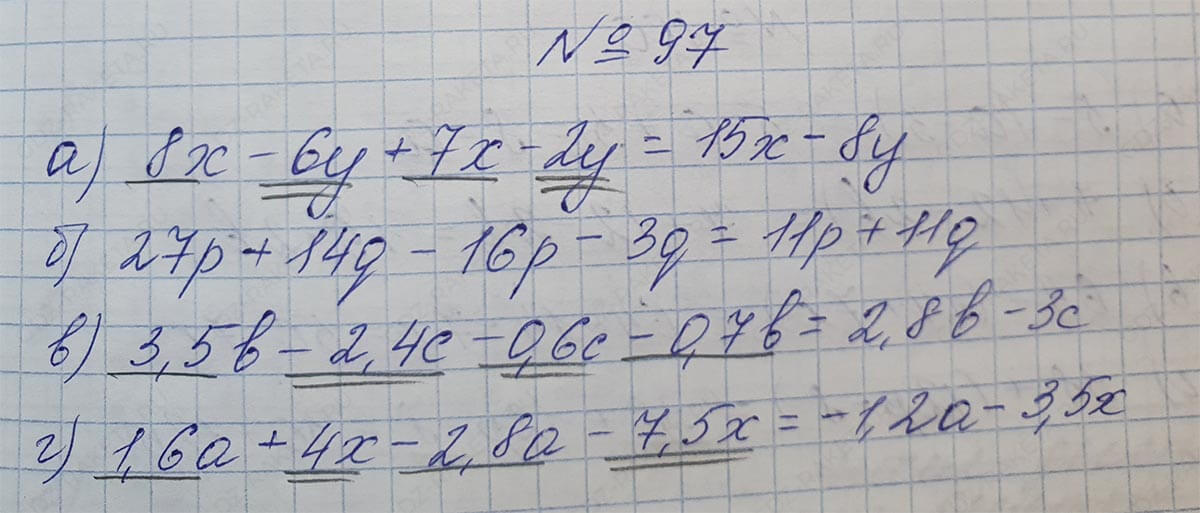 № 97
а) 8x - 6y + 7x - 2y = 15x - 8y
б) 27p + 14q - 16p - 3q = 11p + 11q
в) 3,5b - 2,4c - 0,6c - 0,7b = 2,8b - 3c
г) 1,6a + 4x - 2,8a - 7,5x = -1,2a - 3,5x